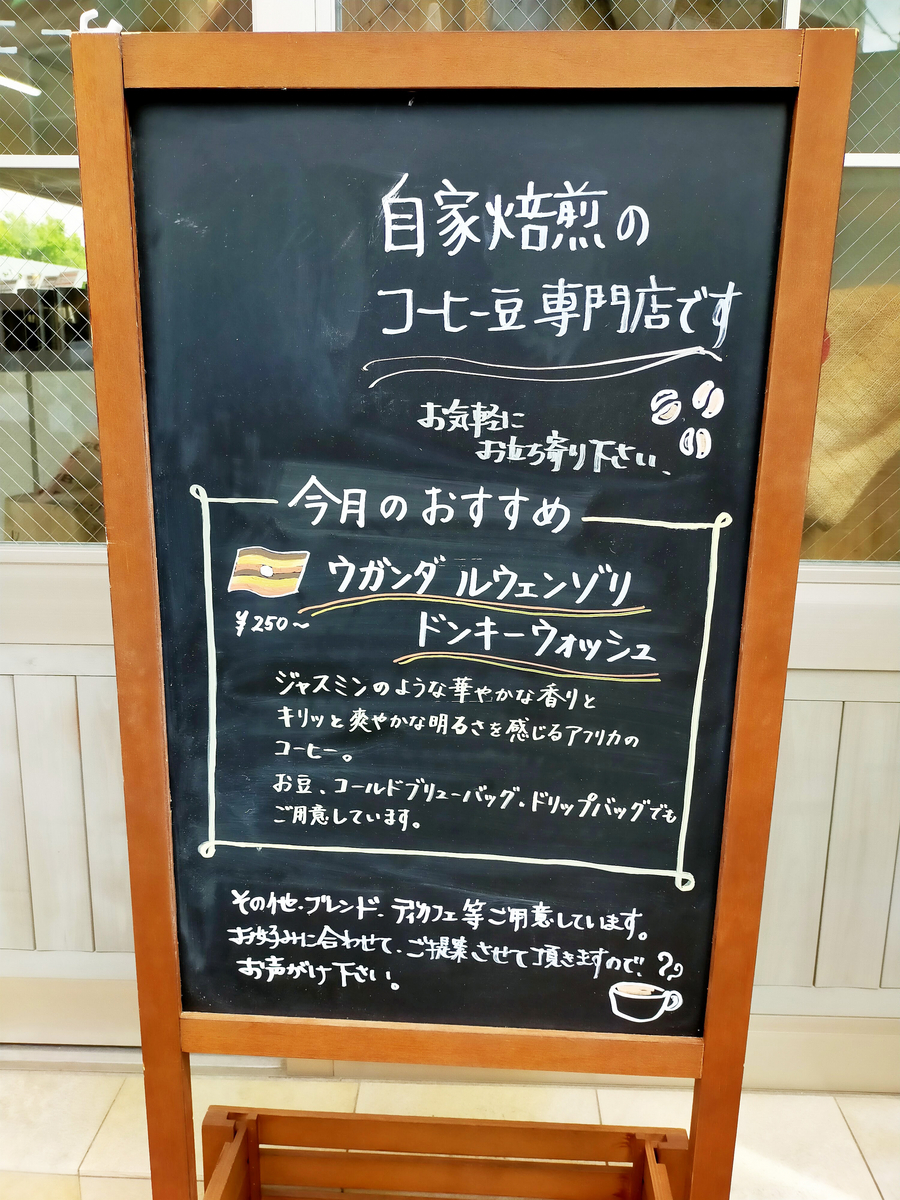 自家焙煎の
コーヒー豆専門店です
お気軽に
お立ち寄り下さい、
今月のおすすめ
ウガンダ ルウェンゾリ
¥250〜
ドンキーウォッシュ
ジャスミンのような華やかな香りと
キリッと爽やかな明るさを感じるアフリカの
コーヒー。
お豆、コールドブリューバッグ・ドリップバッグでも
ご用意しています。
その他・ブレンド・ディカフェ等ご用意しています。
お好みに合わせて、ご提案させて頂きますので、
お声がけ下さい。